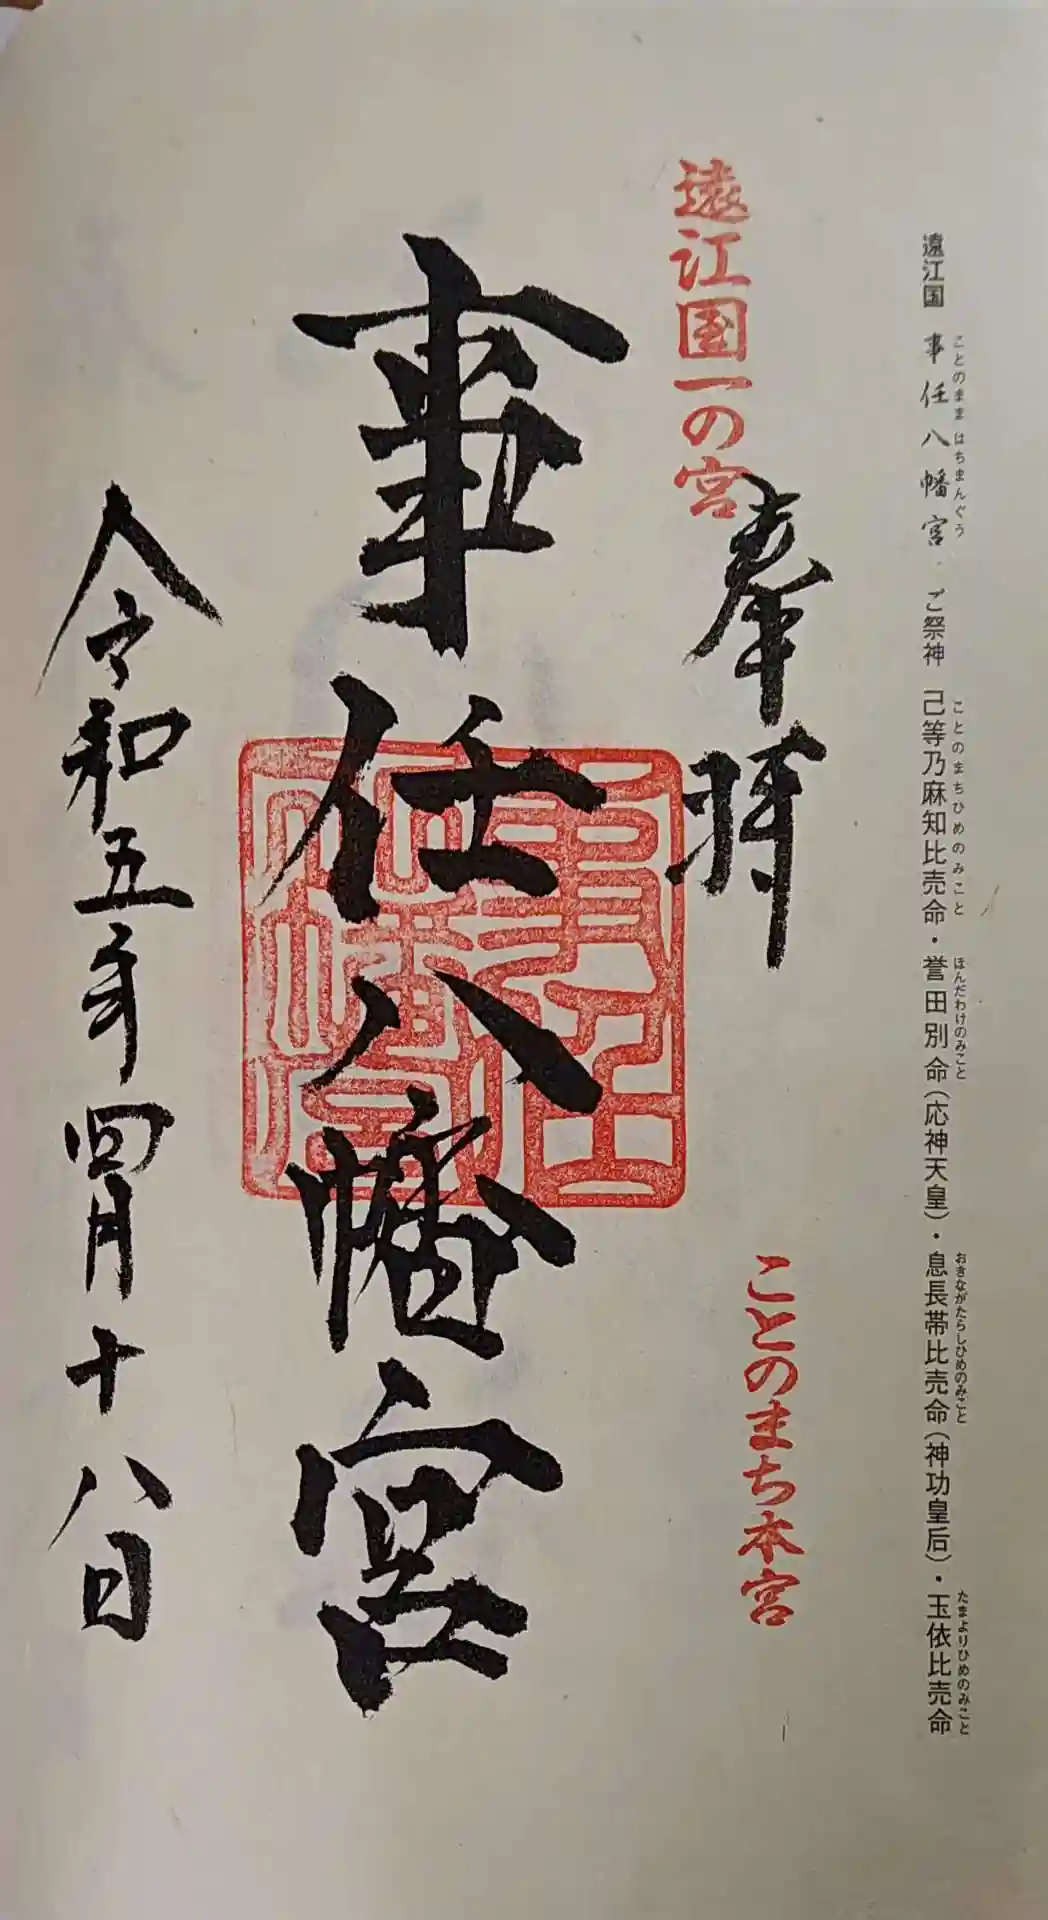 遠江国 事任八幡宮 ご祭神 己等乃麻知比売命・誉田別命(応神天皇)・息長帯比売命(神功皇后)・玉依比売命
ことのまま はちまんぐう ことのまちひめのみこと ほんだわけのみこと おきながたらしひめのみこと たまよりひめのみこと
奉拝
ことのまち本宮
遠江国一の宮
事任八幡宮
事任
八幡宮
令和五年四月十八日